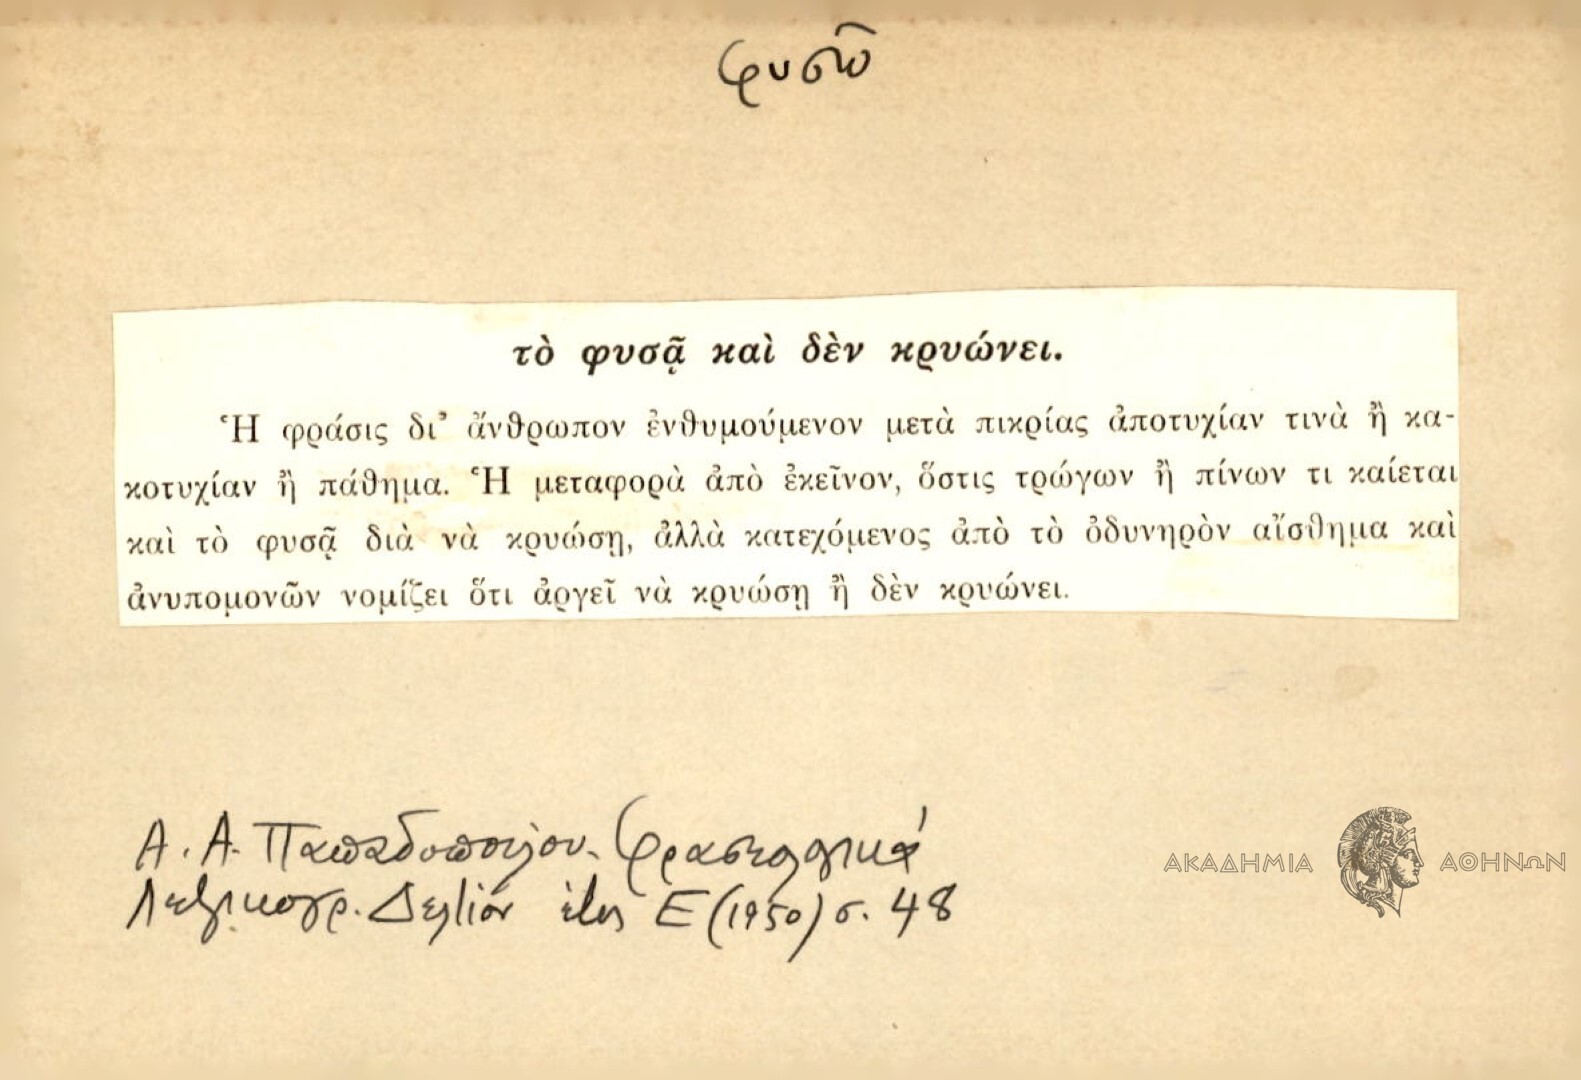 φυσῶ
τὸ φυσᾷ καὶ δὲν κρυώνει.
Ἡ φράσις δι᾿ ἄνθρωπον ἐνθυμούμενον μετὰ πικρίας ἀποτυχίαν τινὰ ἢ κα-
κοτυχίαν ἢ πάθημα. Ἡ μεταφορὰ ἀπὸ ἐκεῖνον, ὅστις τρώγων ἢ πίνων τι καίεται
καὶ τὸ φυσᾷ διὰ νὰ κρυώσῃ, ἀλλὰ κατεχόμενος ἀπὸ τὸ ὀδυνηρὸν αἴσθημα καὶ
ἀνυπομονῶν νομίζει ὅτι ἀργεῖ νὰ κρυώσῃ ἢ δὲν κρυώνει.
Α. Α. Παπαδοπούλου. Φρασεολογικά
Λεξικογρ. Δελτίον ἔτος Ε (1950) σ. 48
ΑΚΑΔΗΜΙΑ ΑΘΗΝΩΝ